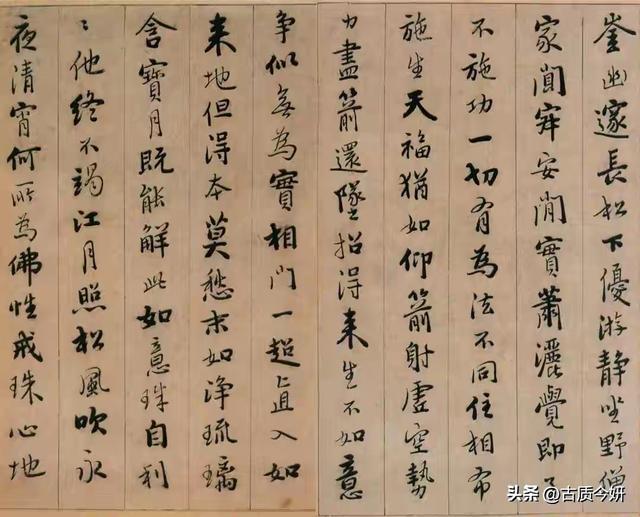 崟幽邃長松下優游靜坐野僧
家闃寂安閑實蕭灑覺即了
不施功一切有為法不同住相布
施生天福猶如仰箭射虛空勢
力盡箭還墜招得来生不如意
爭似無為實相門一超直入如
来地但得本莫愁末如淨琉璃
含寶月既能解此如意珠自利
〻他終不竭江月照松風吹永
夜清宵何所為佛性戒珠心地
头条 @古质今妍